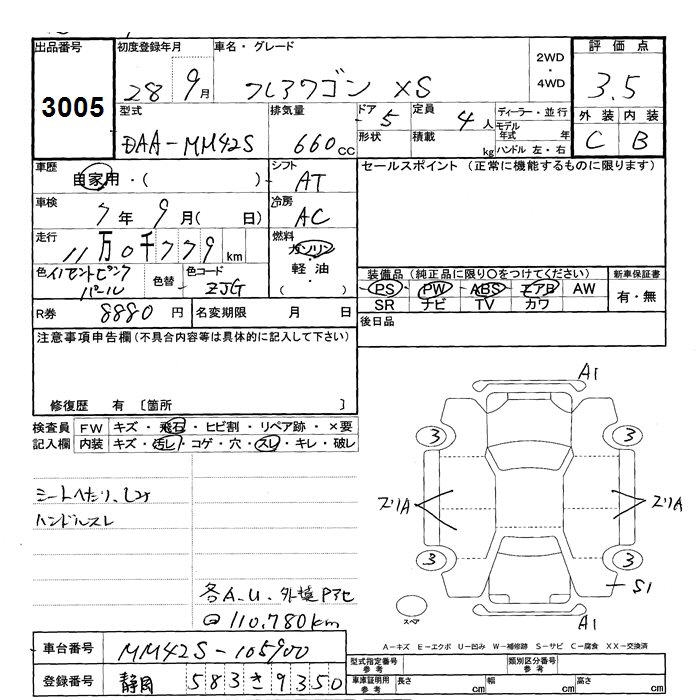 出品番号 初度登録年月 車名・グレード 2WD・4WD 評価点
3005 28 9月 フレアワゴン XS 3.5
型式 排気量 ドア 定員 ディーラー・並行 外装 内装
DAA-MM42S 660cc 5 4人 モデル年式 年 C B
形状 積載 kg ハンドル 左・右
車歴 自家用・( ) シフト AT セールスポイント (正常に機能するものに限ります)
車検 7年 9月( 日) 冷房 AC
走行 11万0千779km 燃料 ガソリン・軽・油 ( )
色 イノセントピンクパール 色替 色コード ZJG 装備品 (純正品に限り○をつけてください) 新車保証書
PS PW ABS エアB AW 有・無
SR ナビ TV カワ
R券 8880円 名変期限 月 日 後日品
注意事項申告欄 (不具合内容等は具体的に記入して下さい)
修復歴 有 〔箇所 〕
検査員記入欄 FW キズ・飛石・ヒビ割・リペア跡・×要
内装 キズ・汚レ・コゲ・穴・スレ・キレ・破レ
シートへたり、しみ
ハンドルスレ
各A.U.外装Pアセ
@110,780km
A1
3 3
スリA スリA
3 3
S1
スペア A1
A-キズ E-エクボ U-凹み W-補修跡 S-サビ C-腐食 XX-交換済
車台番号 MM42S-105900 型式指定番号 参考 類別区分番号 参考
登録番号 静岡 583さ9350 車庫証明用 参考 長さ cm 幅 cm 高さ cm